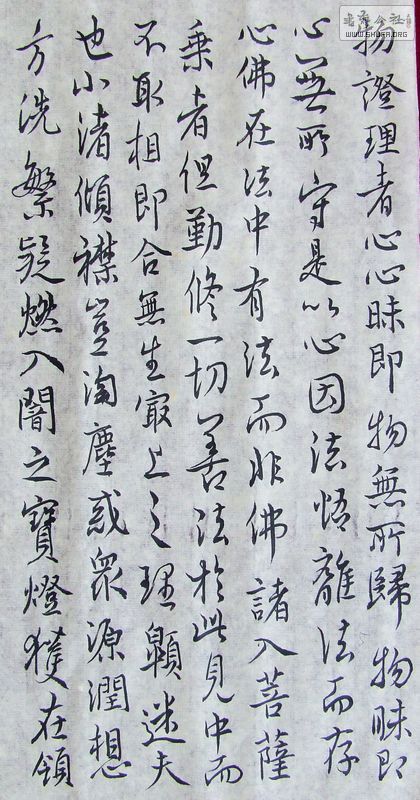 物證理者心心昧即物無所歸物昧即
心無所守是以心因法悟離法而存
心佛在法中有法而非佛諸入菩薩
乘者但勤修一切善法於此見中而
不取相即合無生㝡上之理顯迷夫
也小渚傾襟豈淘塵惑眾源潤想
方洗繁疑燃入闇之寶燈獲在領
WWW.SHUFA.ORG